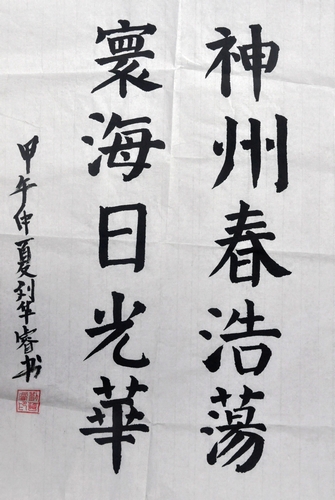 神州春浩蕩
寰海日光華
甲午仲夏刘华睿书